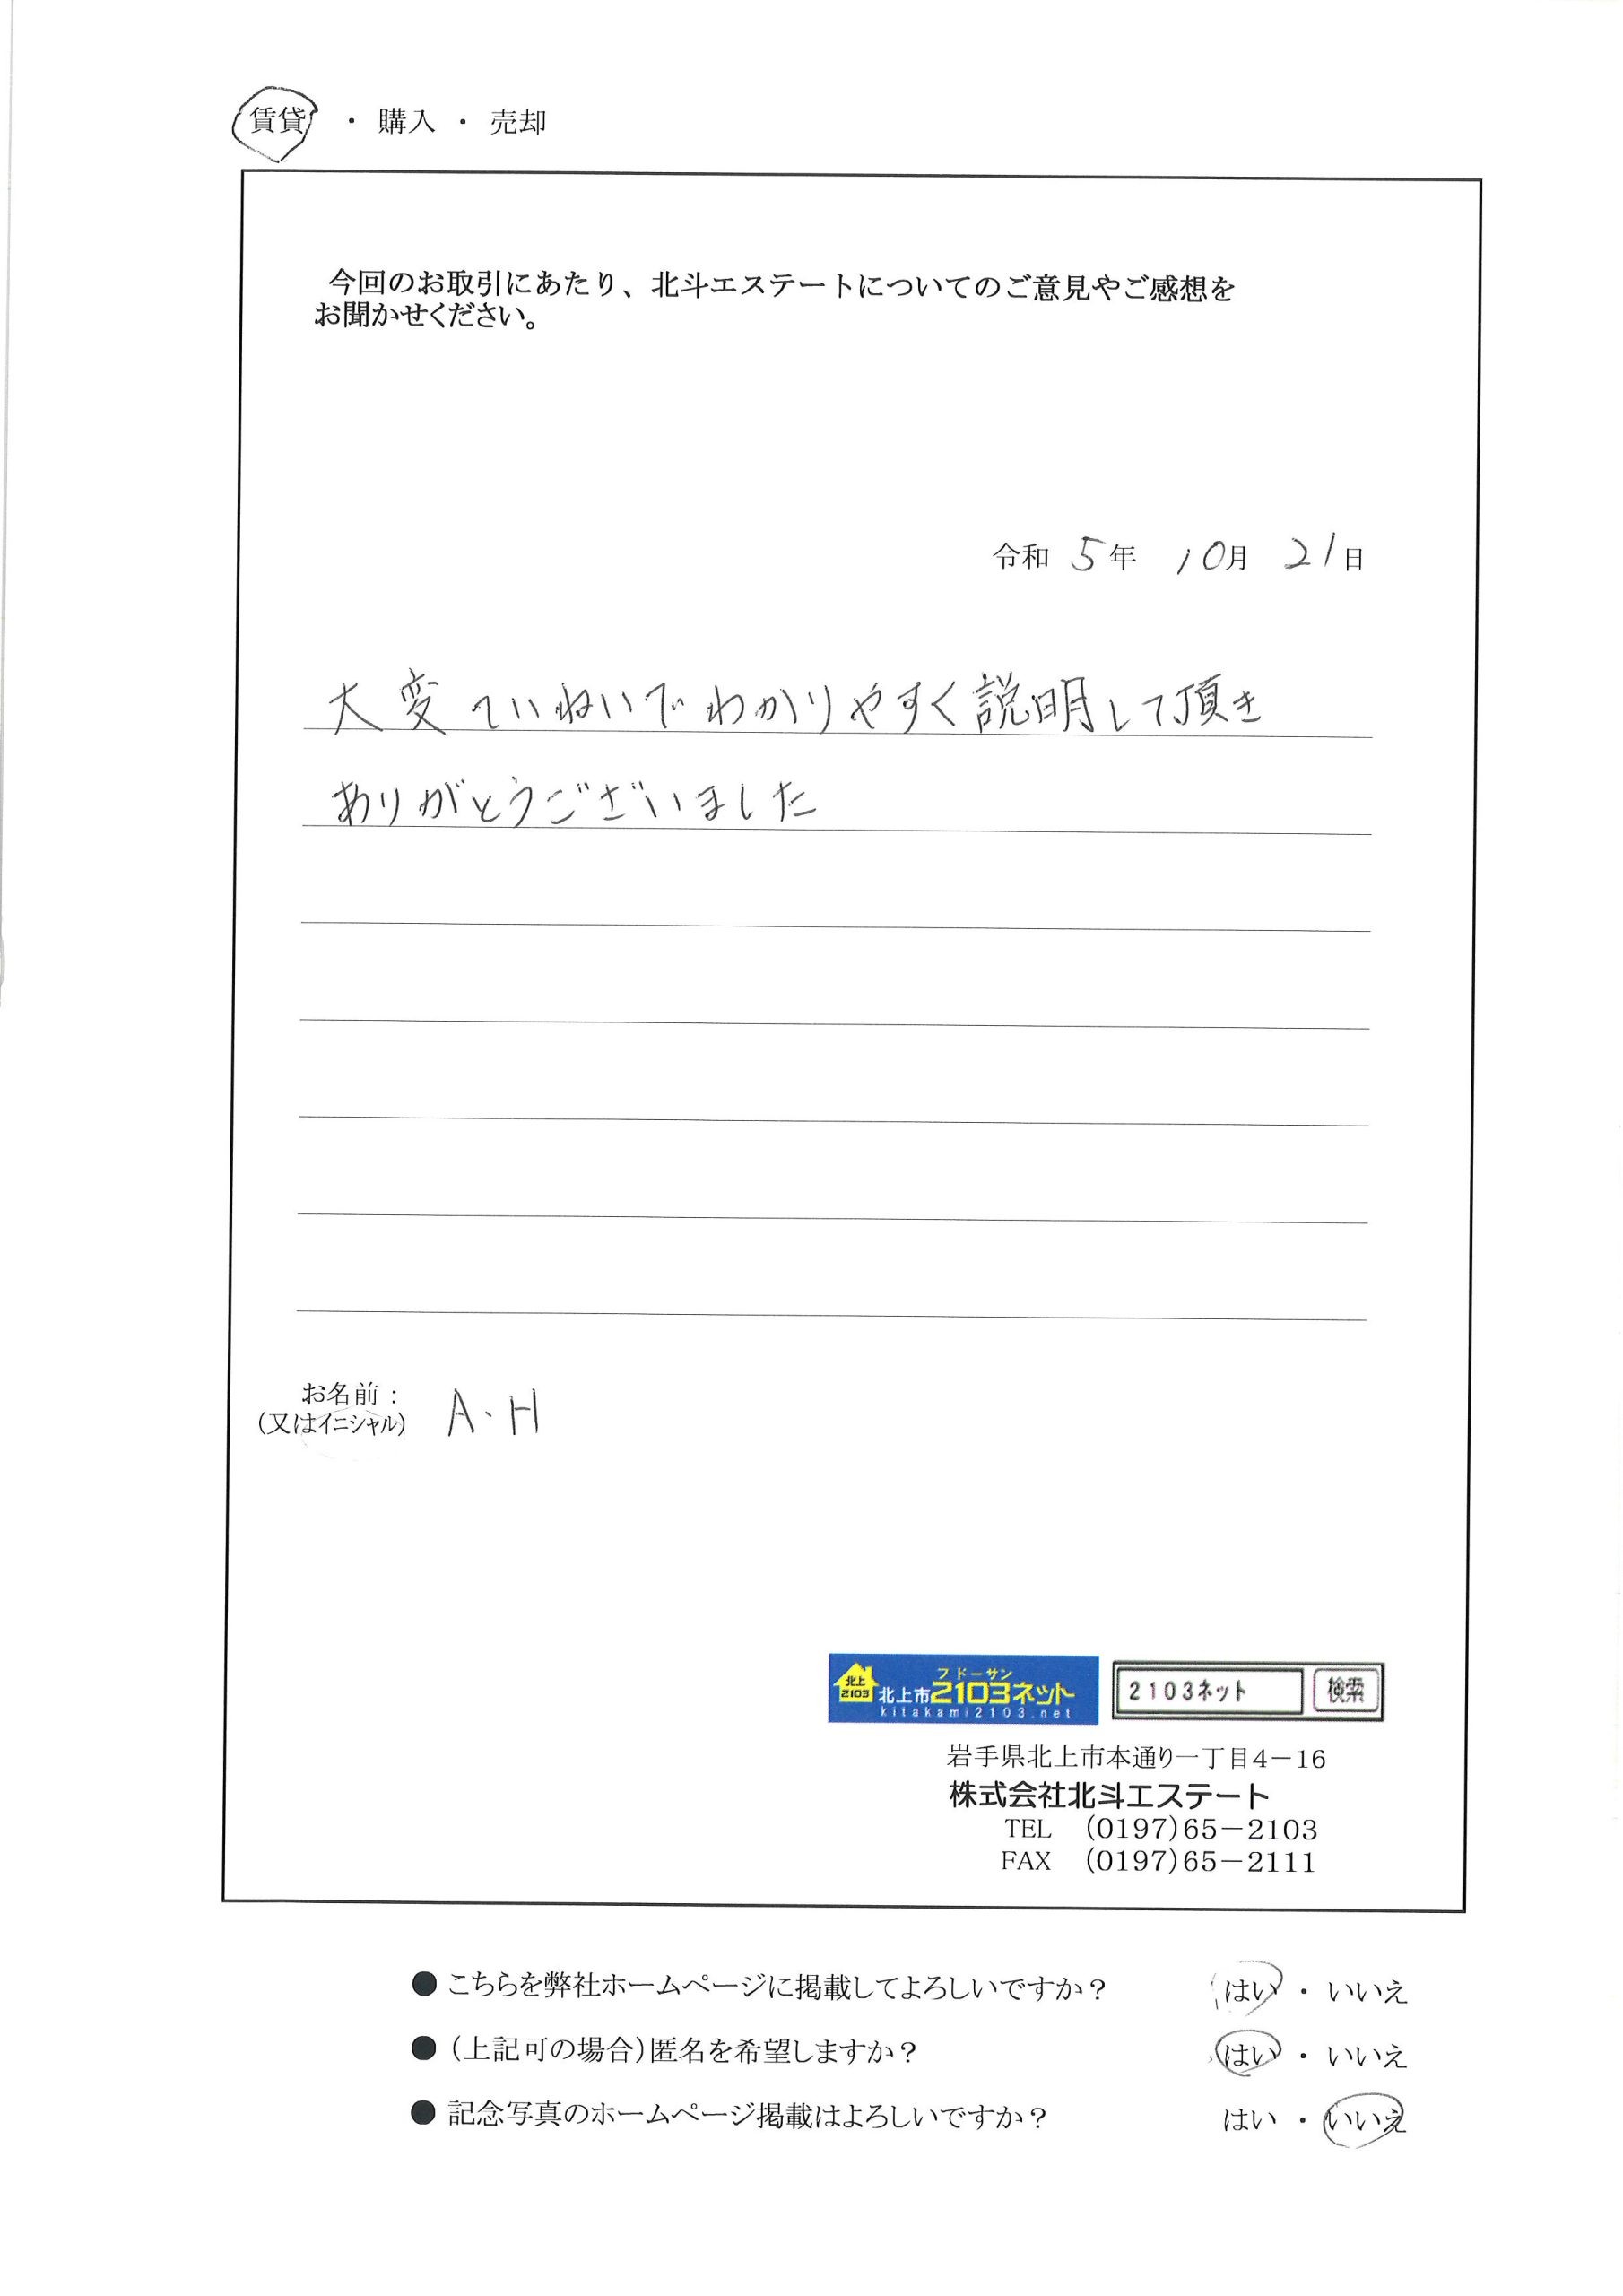 賃貸 ・ 購入 ・ 売却
今回のお取引にあたり、北斗エステートについてのご意見やご感想を
お聞かせください。
令和 5年 10月 21日
大変ていねいでわかりやすく説明して頂き
ありがとうございました
お名前：
(又はイニシャル) A・H
フドーサン
北上
2103 北上市2103ネット
kitakami2103.net
2103ネット 検索
岩手県北上市本通り一丁目4－16
株式会社北斗エステート
TEL (0197)65－2103
FAX (0197)65－2111
●こちらを弊社ホームページに掲載してよろしいですか？ はい ・ いいえ
●(上記可の場合)匿名を希望しますか？ はい ・ いいえ
●記念写真のホームページ掲載はよろしいですか？ はい ・ いいえ